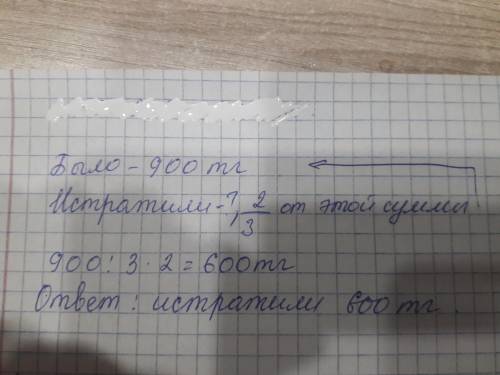 Было – 900 тг
Истратили - ?, 2/3 от этой суммы
900 : 3 · 2 = 600 тг
Ответ : истратили 600 тг.